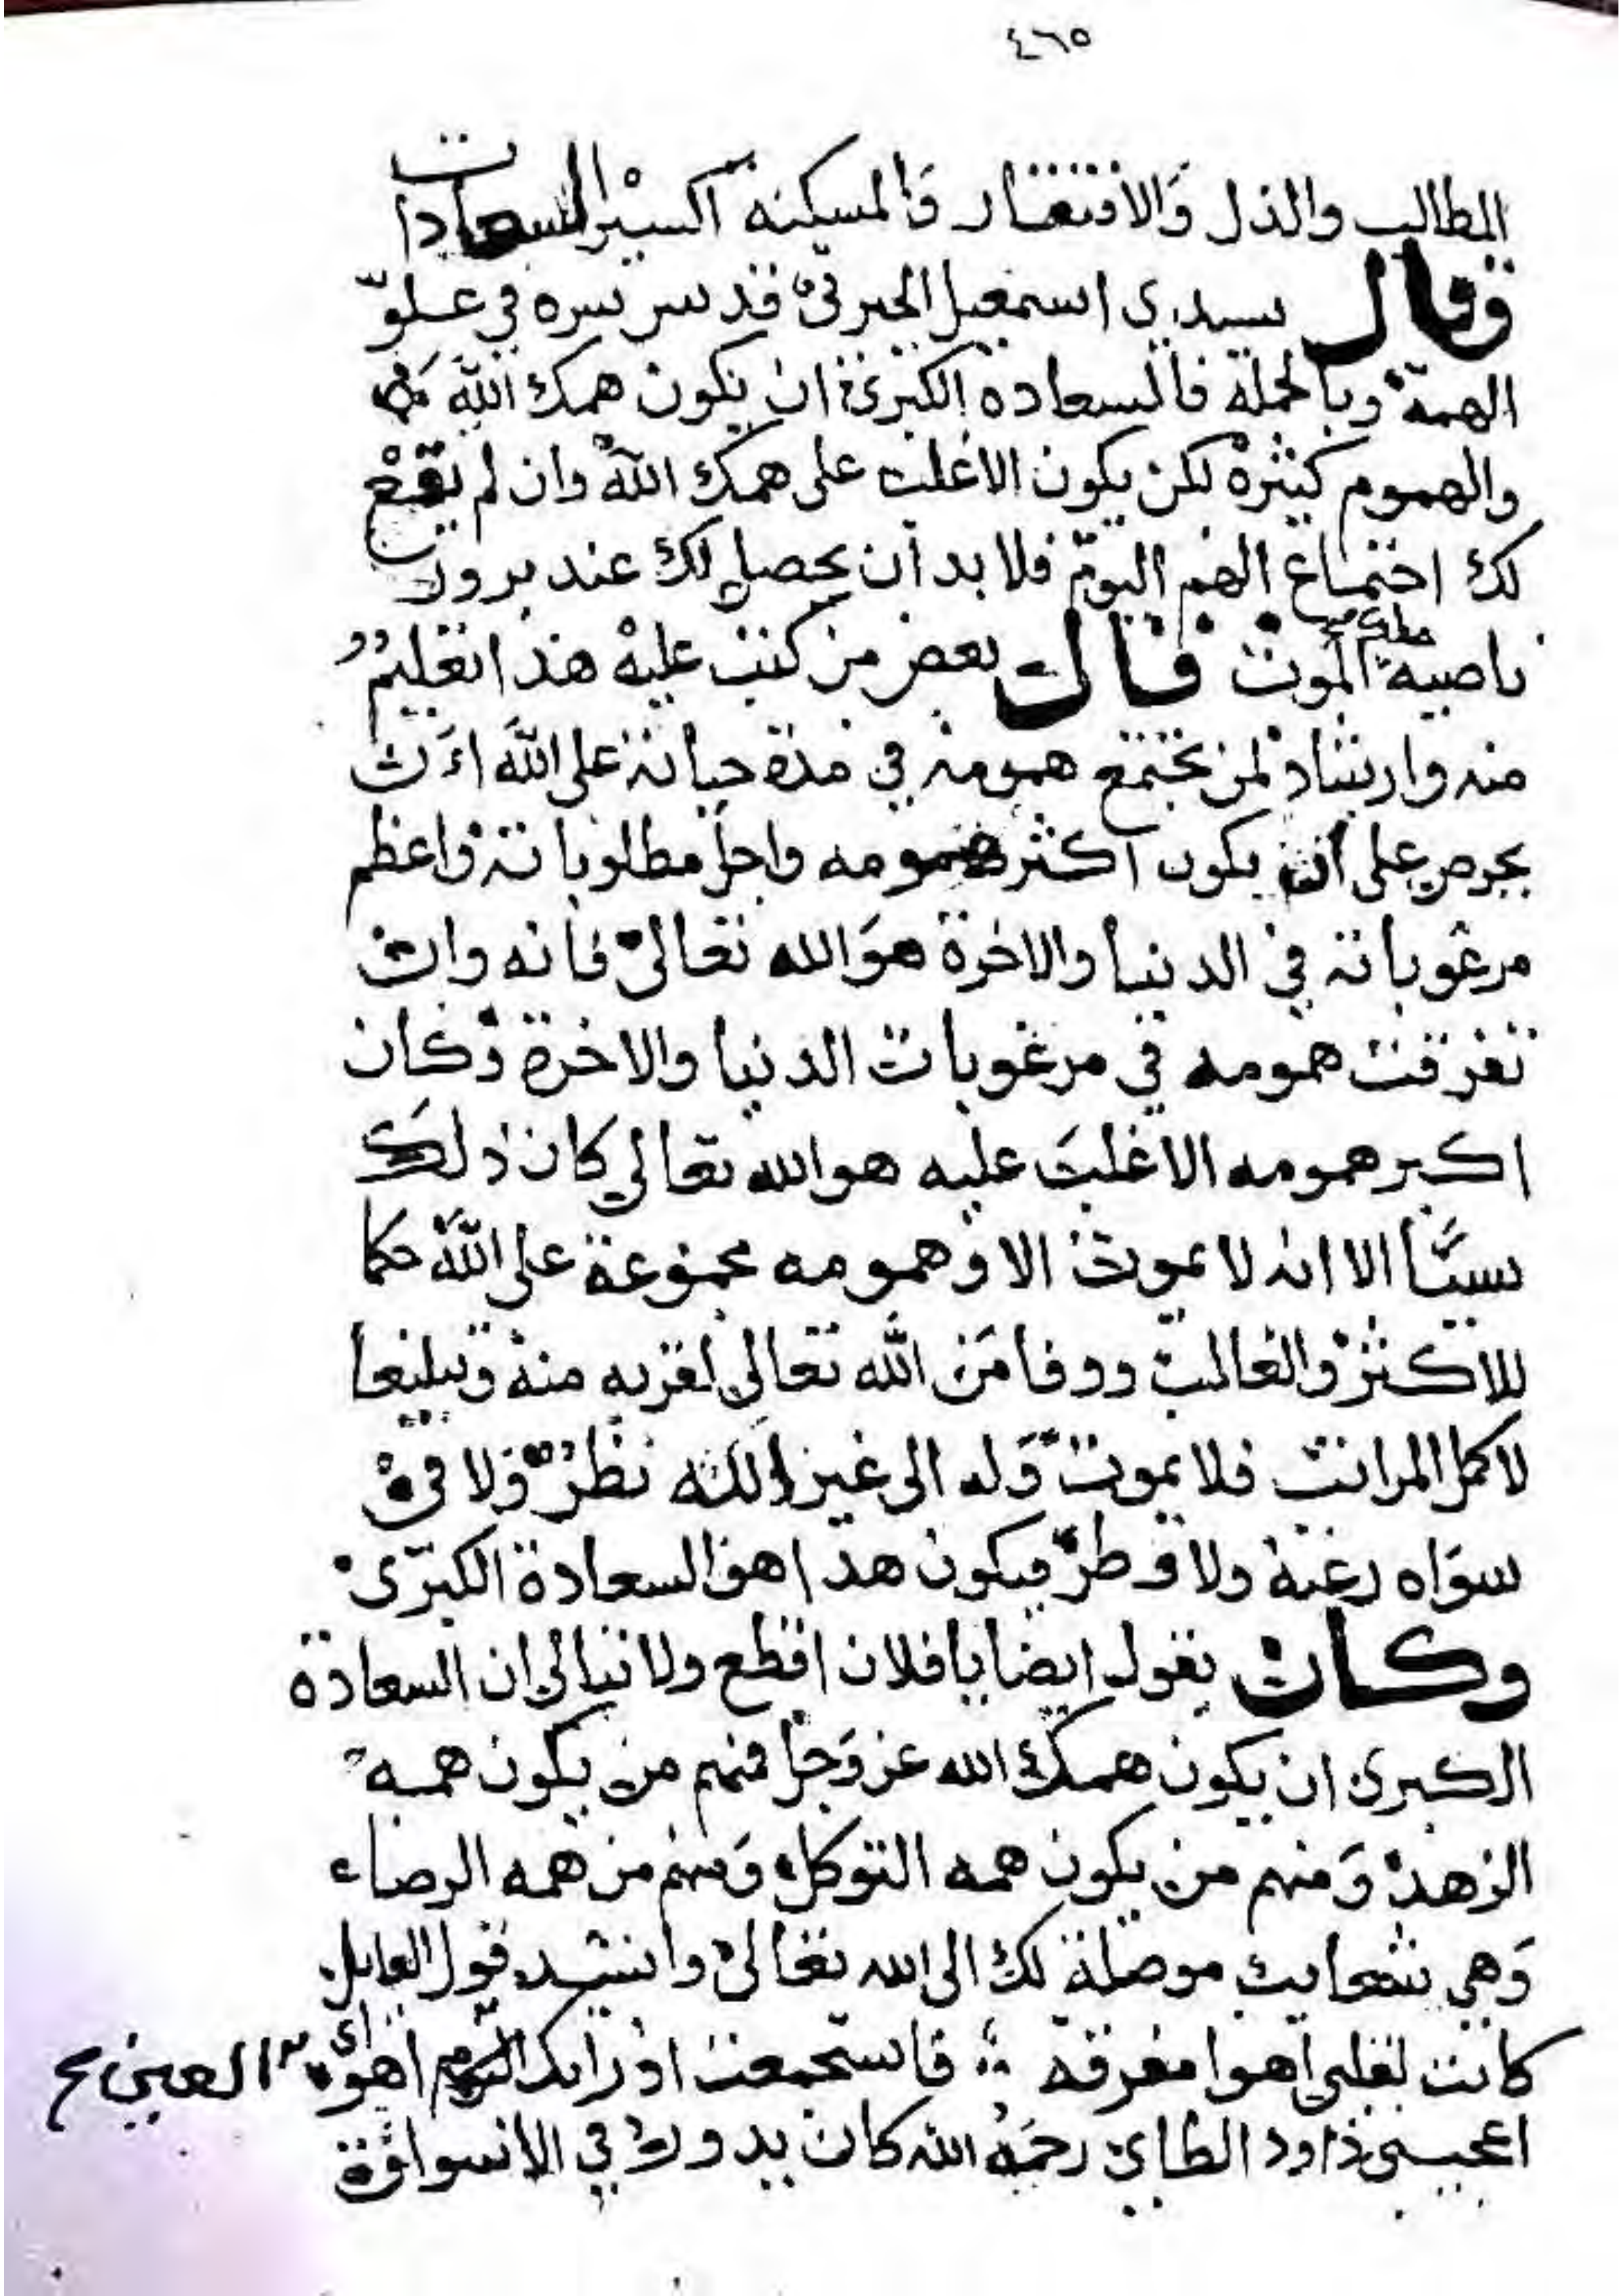 ٤٦٥
المطالب والذل والافتقار والمسكنه اكسير السعادات
وقال سيدي اسمعيل الجبرتي قدس سره في علوّ
الهمة وبالجملة فالسعاده الكبرى ان يكون همك الله
والهموم كثيرة لكن يكون الاغلب على همك الله وان لم يقع
لك اجتماع الهم اليوم فلا بد ان يحصل لك عند بروز
ناصية الموت قال بعض من كتب عليه هذا تعليم
منه وارشاد لمن تجتمع همومه في مدة حياته على الله ان
يحرص على ان يكون اكثر همومه واجل مطلوباته واعظم
مرغوباته في الدنيا والاخرة هو الله تعالى فانه وان
تفرقت همومه في مرغوبات الدنيا والاخرة وكان
اكبر همومه الاغلب عليه هو الله تعالى كان ذلك
سببا الا انه لا يموت الا وهمومه مجموعة على الله حكما
للاكثر والغالب ووفا من الله تعالى لقربه منه وتبليغا
لاكمل المراتب فلا يموت وله الى غير الله نظر ولا في
سواه رغبة ولا وطر فيكون هذا هو السعادة الكبرى
وكان يقول ايضا يا فلان اقطع ولا تبالى ان السعادة
الكبرى ان يكون همك الله عز وجل فمنهم من يكون همه
الزهد ومنهم من يكون همه التوكل ومنهم من همه الرضاء
وهي شعايب موصلة لك الى الله تعالى وانشد قول القايل
كانت لقلبى اهوا مفرقه ؞ فاستجمعت اذ راتك العين اهواى
اعجبنى داود الطاي رحمه الله كان يدور في الاسواق